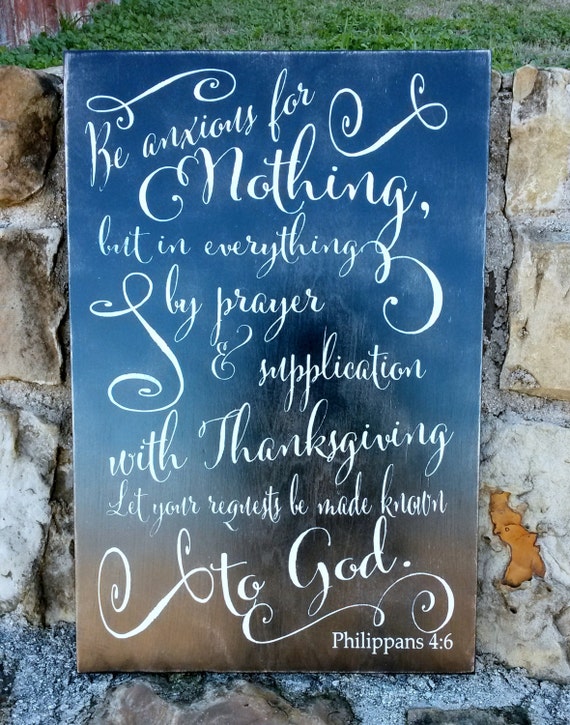 Be anxious for
Nothing,
but in everything
by prayer
& supplication
with Thanksgiving
Let your requests be made known
to God.
Philippans 4:6